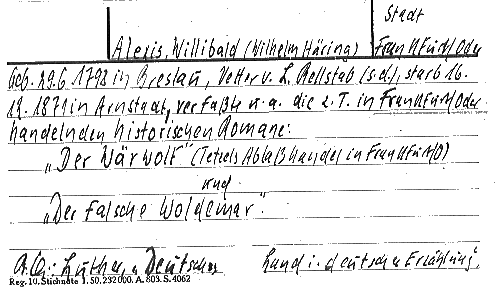 Stadt
Alexis, Willibald (Wilhelm Häring) Frankfurt/Oder
geb. 29.6.1798 in Breslau, Vetter v. L. Rellstab (s.d.), starb 16.
12.1871 in Arnstadt, verfaßte u.a. die z.T. in Frankfurt/Oder
handelnden historischen Romane:
„Der Wärwolf" (Tetzels Ablaßhandel in Frankfurt/O)
und
„Der falsche Woldemar".
A.Q.: Luther, „Deutsches Land i. deutscher Erzählung".
Reg. 10. Stichnote 1. 50. 232000. A. 803. S. 4062